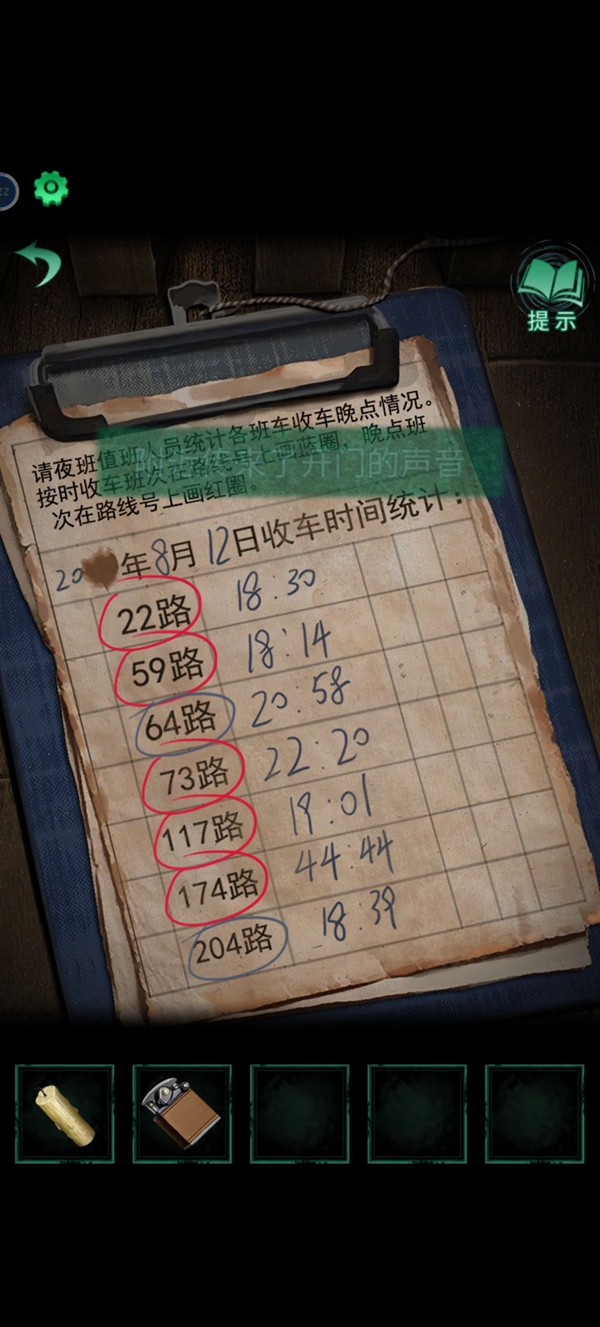 提示
请夜班值班人员统计各班车收车晚点情况。
按时收车班次在路线号上画蓝圈，晚点班
次在路线号上画红圈。
传来了开门的声音
20 年8月12日收车时间统计：
22路 18:30
59路 18:14
64路 20:58
73路 22:20
117路 19:01
174路 44:44
204路 18:39